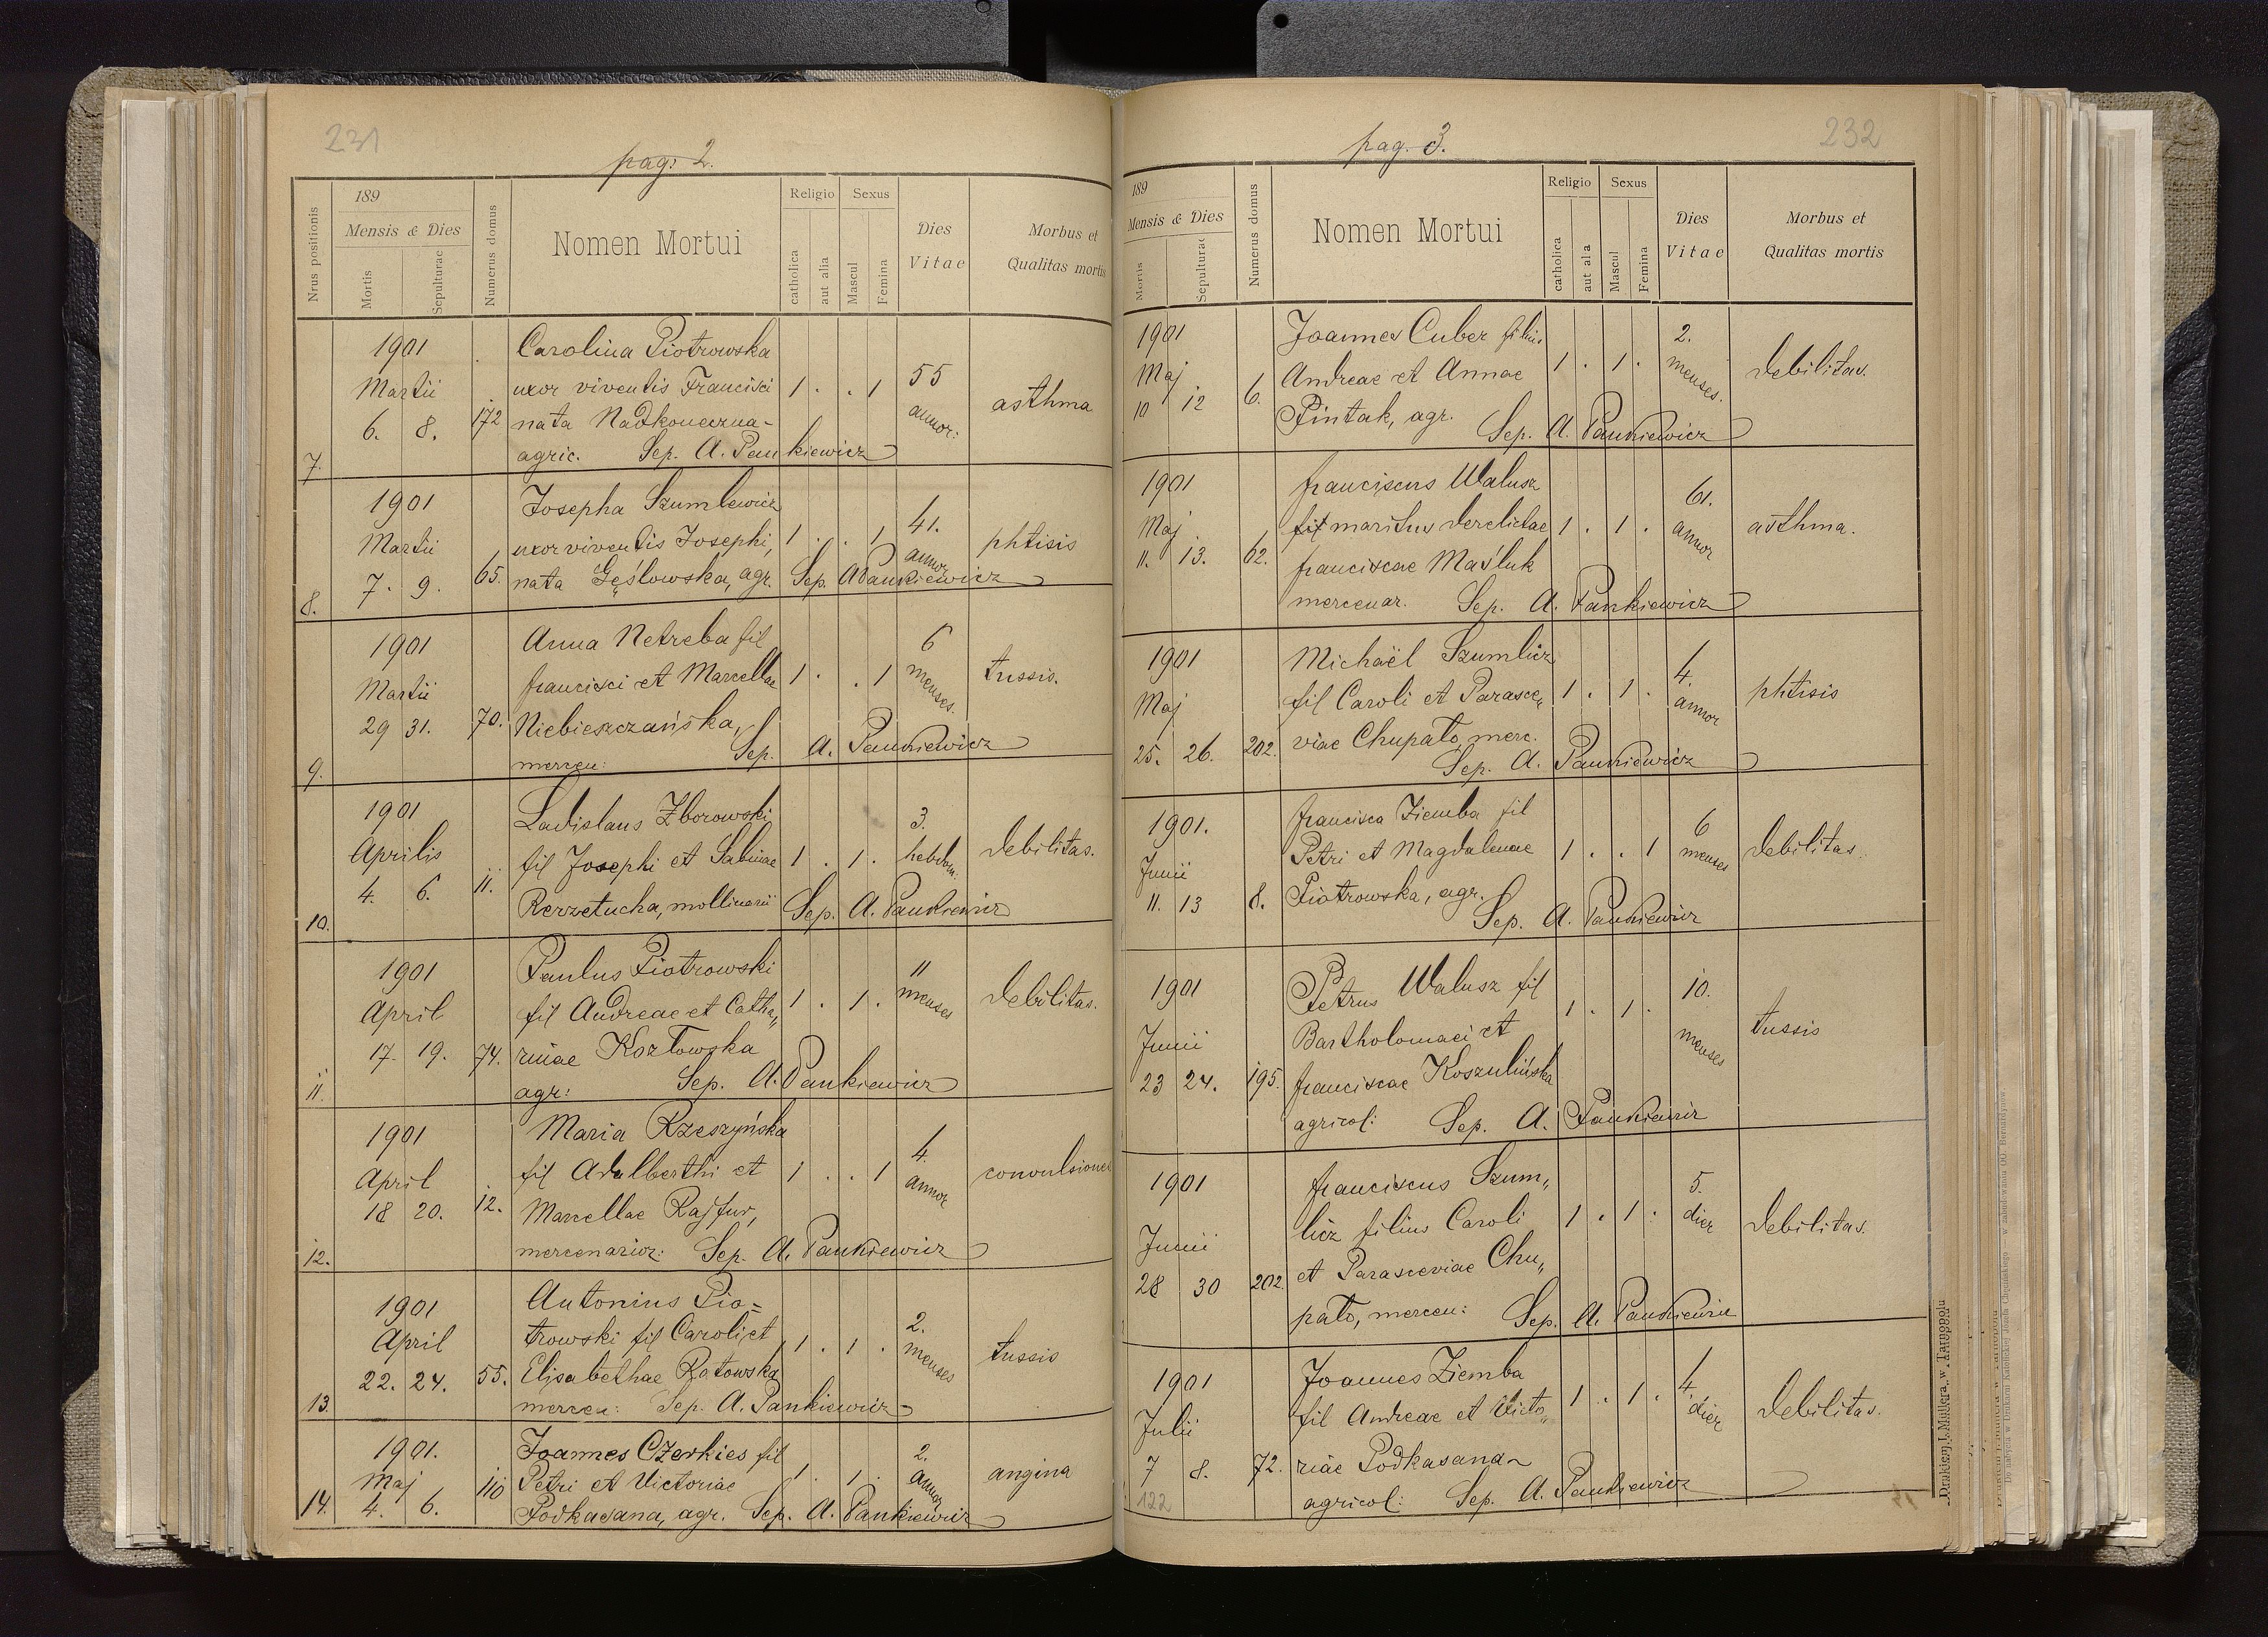 231
pag: 2.
Nrus positionis
189
Mensis & Dies
Mortis
Sepulturae
Numerus domus
Nomen Mortui
Religio
catholica
aut alia
Sexus
Mascul
Femina
Dies
Vitae
Morbus et
Qualitas mortis
7.
1901
Martii
6. 8.
172
Carolina Piotrowska
uxor viventis Francisci
nata Nadkoneczna-
agric. Sep. A. Pankiewicz
1 . . 1
55
annor:
asthma
8.
1901
Martii
7. 9.
65.
Josepha Szumlewicz
uxor viventis Josephi,
nata Gęślowska, agr. Sep. A Pankiewicz
1 . . 1
41.
annor
phtisis
9.
1901
Martii
29 31.
70.
Anna Netreba fil
francisci et Marcellae
Niebieszczańska,
mercen: Sep. A. Pankiewicz
1 . . 1
6
menses.
tussis.
10.
1901
Aprilis
4. 6.
11.
Ladislaus Zborowski
fil Josephi et Sabinae
Rerzetucha, mollinarii Sep. A. Pankiewicz
1 . 1 .
3.
hebdom:
debilitas.
11.
1901
April
17. 19.
74.
Paulus Piotrowski
fil Andreae et Catha„
rinae Kozłowska
agr: Sep. A. Pankiewicz
1 . 1 .
11
menses
debilitas.
12.
1901
April
18 20.
12.
Maria Rzeszyńska
fil Adalberthi et
Marcellae Rajfur,
mercenarior: Sep. A. Pankiewicz
1 . . 1
4.
annor
convulsiones
13.
1901
April
22. 24.
55.
Antonius Pio=
trowski fil Caroli et
Elisabethae Ratowska
mercen: Sep. A. Pankiewicz
1 . 1 .
2.
menses
tussis
14.
1901.
Maj
4. 6.
110
Joannes Czerkies fil
Petri et Victoriae
Podkasana, agr. Sep. A. Pankiewicz
1 . 1 .
2.
annor
angina
232
pag. 3.
189
Mensis & Dies
Mortis
Sepulturae
Numerus domus
Nomen Mortui
Religio
catholica
aut alia
Sexus
Mascul
Femina
Dies
Vitae
Morbus et
Qualitas mortis
1901
Maj
10 12
6.
Joannes Cuber filius
Andreae et Annae
Pintak, agr. Sep. A. Pankiewicz
1 . 1 .
2.
menses.
debilitas.
1901
Maj
11. 13.
62.
franciscus Walusz
fil maritus derelictae
franciscae Maśluk
mercenar. Sep. A. Pankiewicz
1 . 1 .
61.
annor
asthma.
1901
Maj
25. 26.
202.
Michaël Szumlicz
fil Caroli et Parasce„
viae Chupato merc.
Sep. A. Pankiewicz
1 . 1 .
4.
annor
phtisis
1901.
Junii
11. 13
8.
francisca Ziemba fil
Petri et Magdalenae
Piotrowska, agr.
Sep. A. Pankiewicz
1 . . 1
6
menses
debilitas.
1901
Junii
23 24.
195.
Petrus Walusz fil
Bartholomaei et
franciscae Koszulińska
agricol: Sep. A. Pankiewicz
1 . 1 .
10.
menses
tussis
1901
Junii
28 30
202
franciscus Szum„
licz filius Caroli
et Parasceviae Chu„
pato, mercen: Sep. A. Pankiewicz
1 . 1 .
5.
dier
debilitas.
1901
Julii
7 8.
72.
Joannes Ziemba
fil Andreae et Victo„
riae Podkasana
agricol: Sep. A. Pankiewicz
1 . 1 .
4.
dier
debilitas.
122
Drukiem J. Müllera, w Tarnopolu